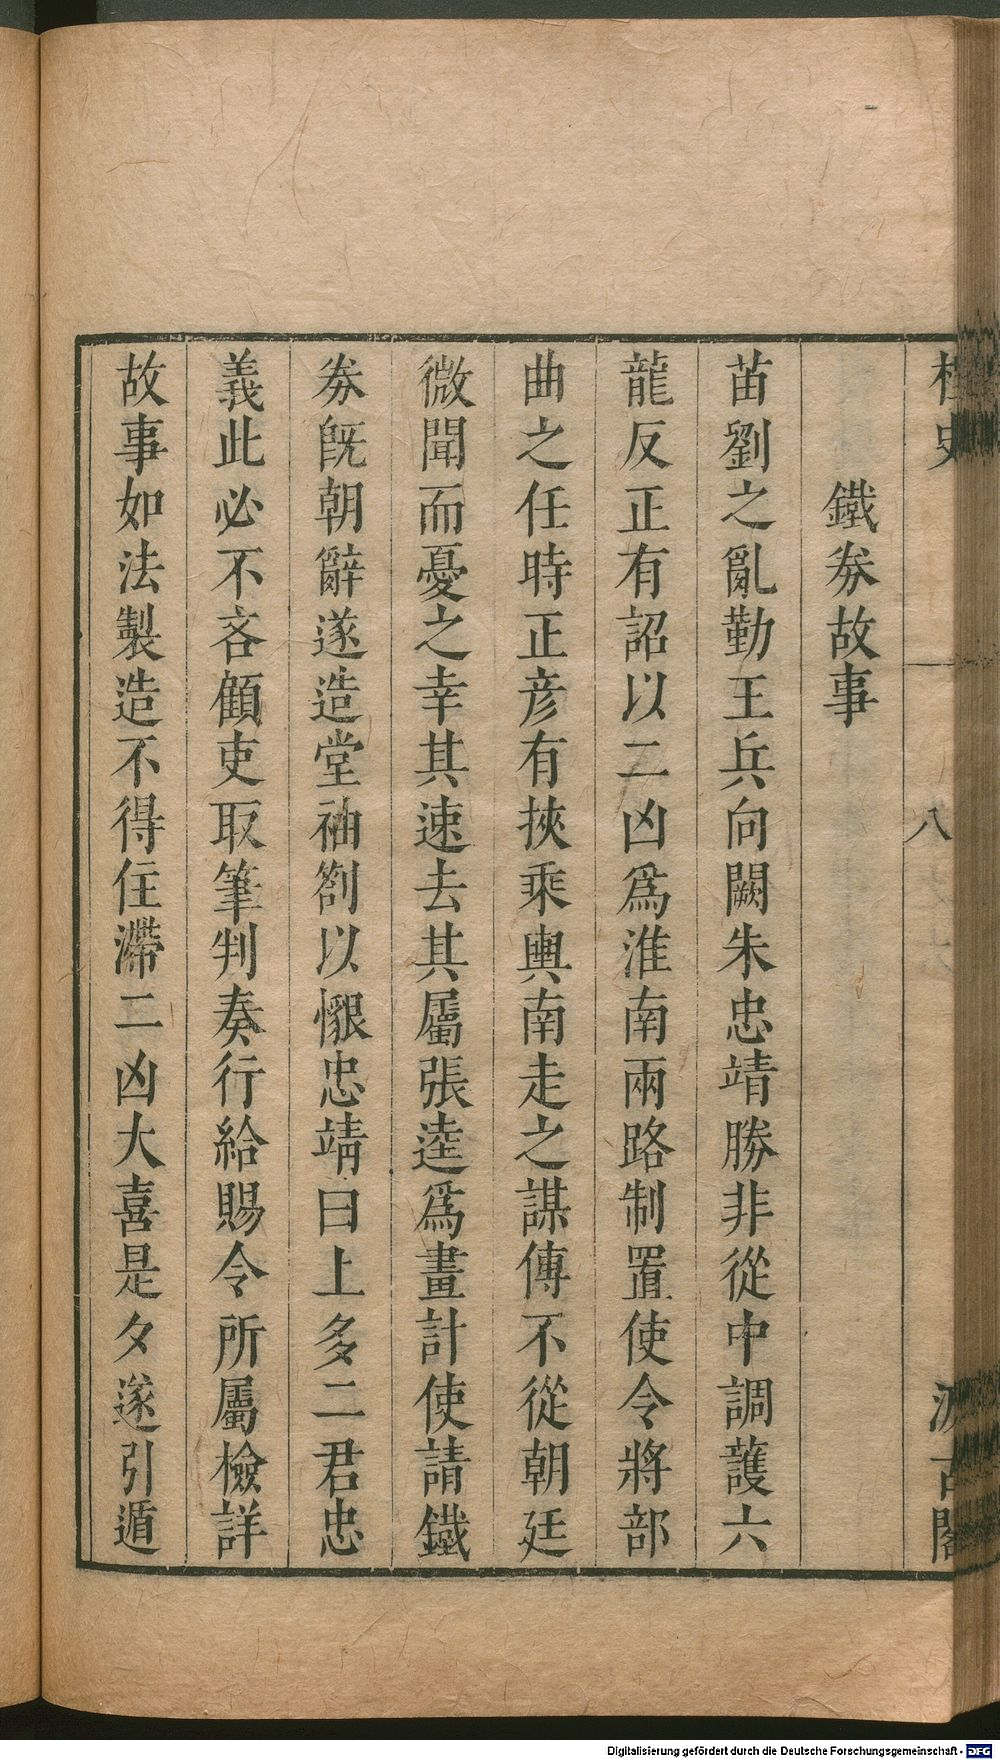 桯史
八
汲古閣
鐵券故事
苗劉之亂勤王兵向闕朱忠靖勝非從中調護六
龍反正有詔以二凶爲淮南兩路制置使令將部
曲之任時正彥有挾乘輿南走之謀傳不從朝廷
微聞而憂之幸其速去其屬張逵爲畫計使請鐵
券既朝辭遂造堂袖劄以懇忠靖曰上多二君忠
義此必不吝顧吏取筆判奏行給賜令所屬檢詳
故事如法製造不得住滯二凶大喜是夕遂引遁
Digitalisierung gefördert durch die Deutsche Forschungsgemeinschaft - DFG